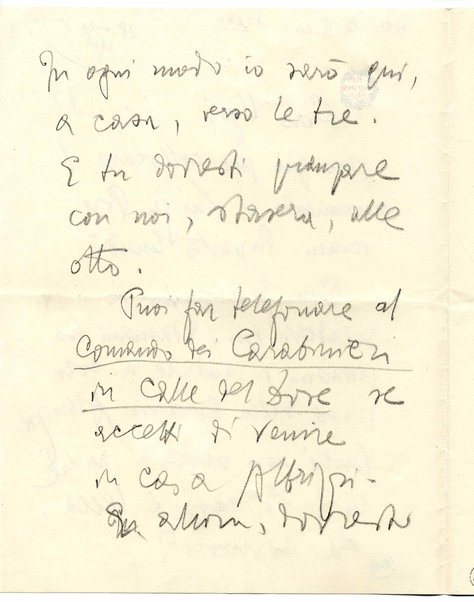 In ogni modo io sarò qui,
a casa, verso le tre.
E tu dovresti pranzare
con noi, stasera, alle
otto.
Puoi far telefonare al
Comando dei Carabinieri
in calle del Dose se
accetti di venire
in casa Albrizzi.
allora, dovresti